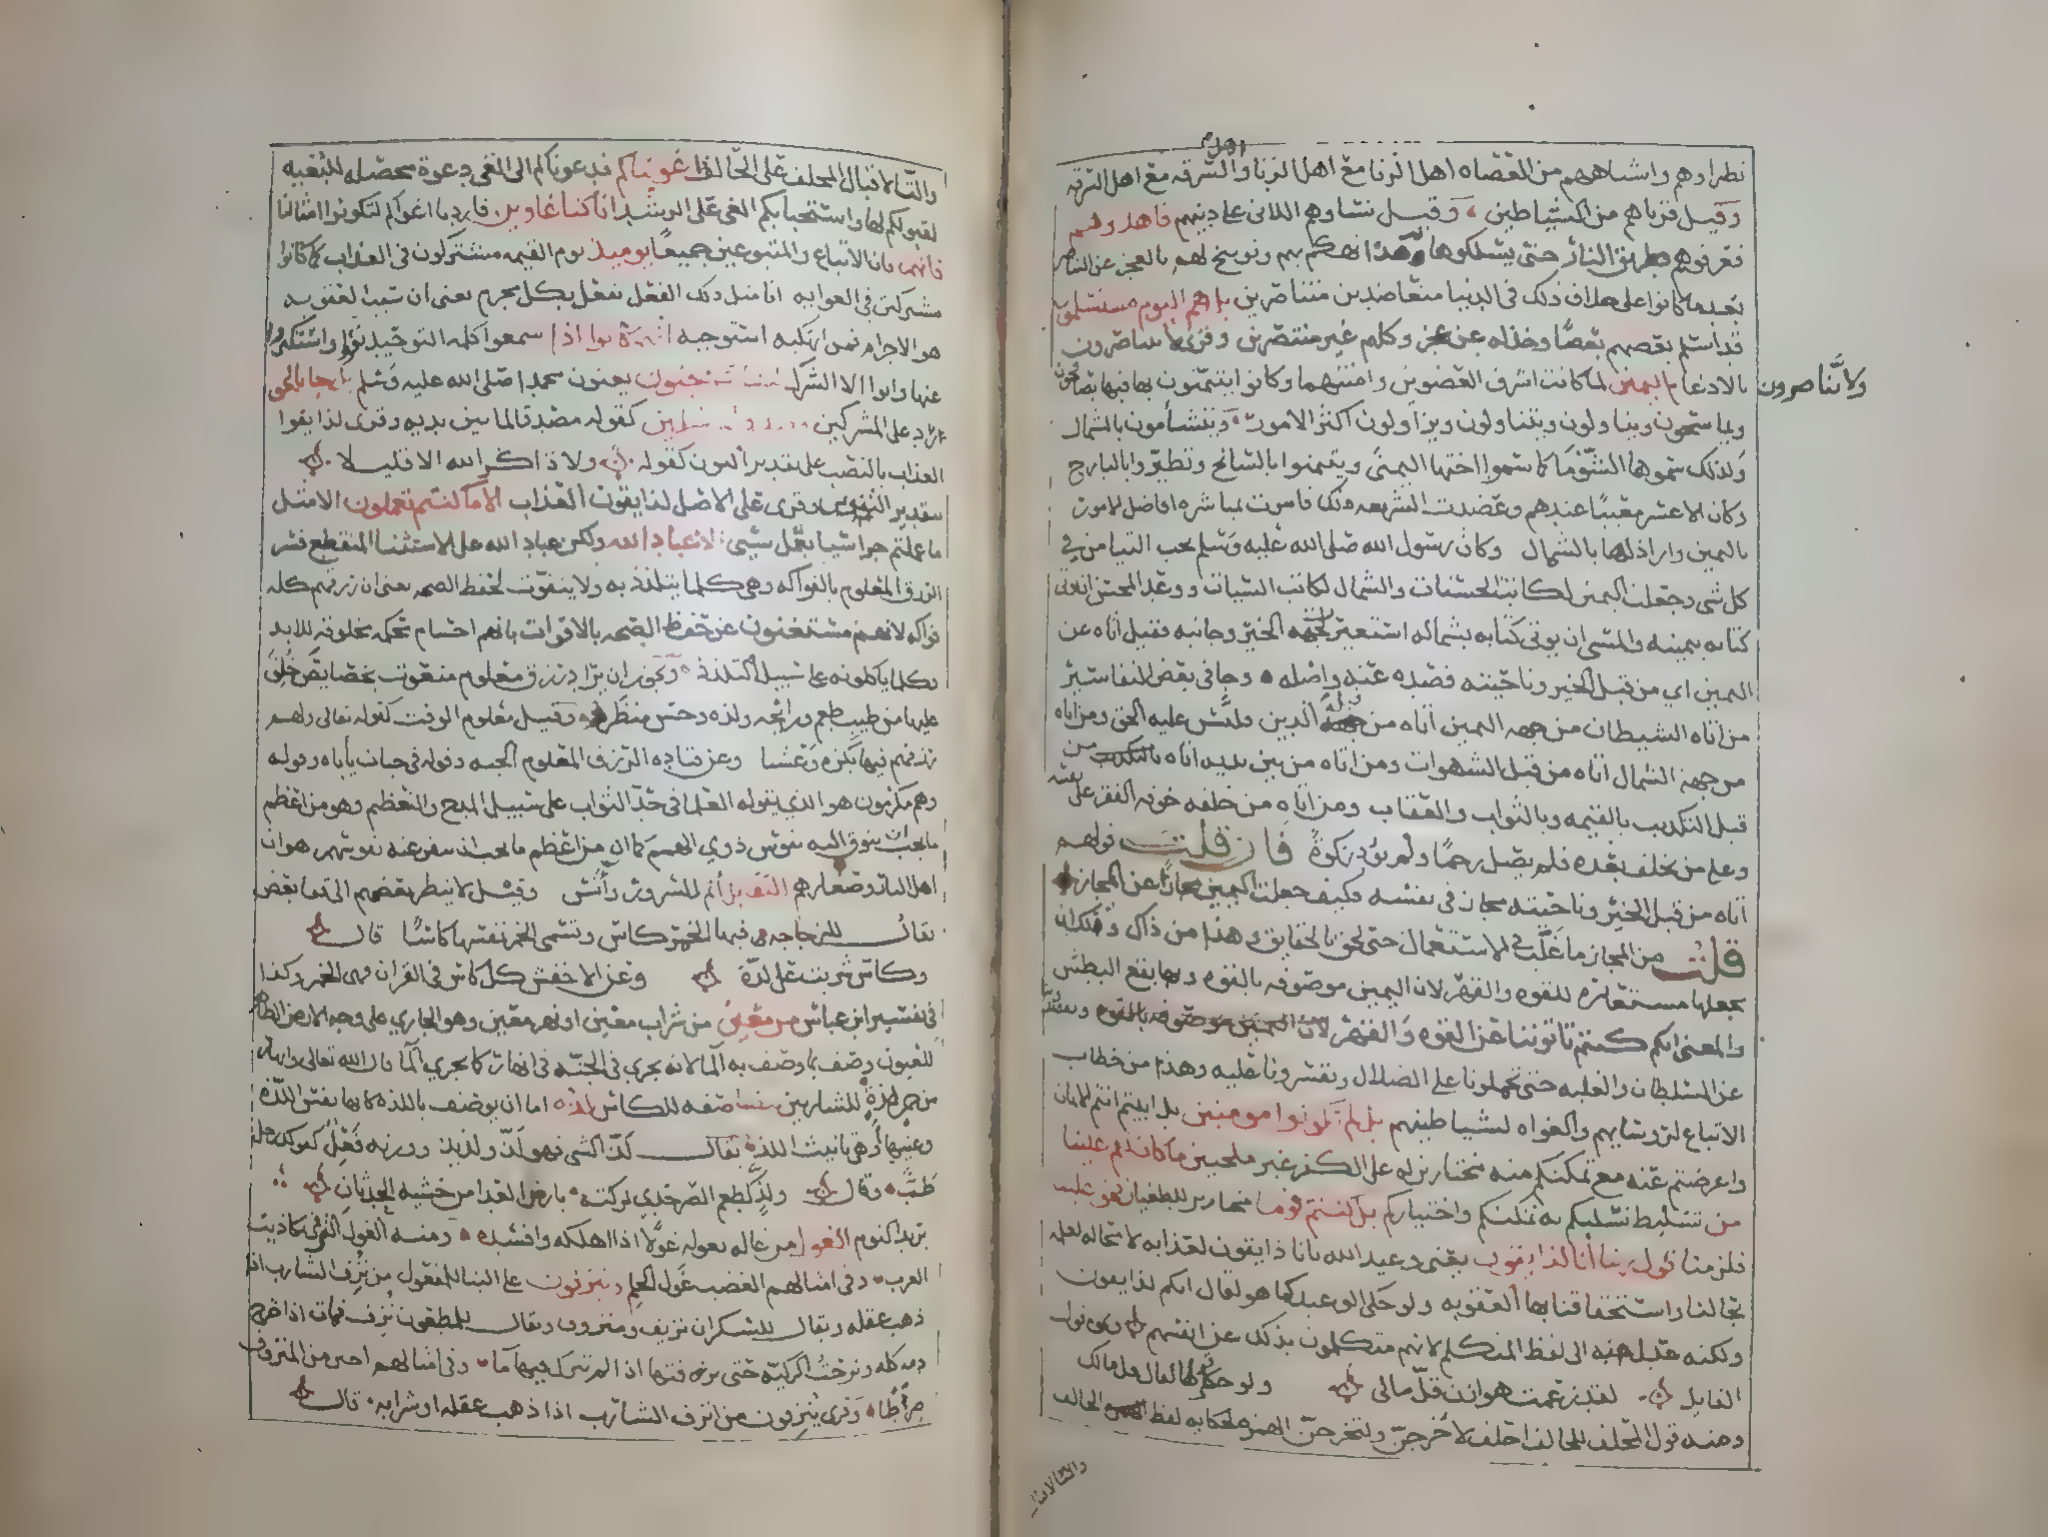 اهل
نظراوهم واشباههم من العصاه اهل الزنا مع اهل الزنا والسرقه مع اهل السرقه
وقيل قرناهم من الشياطين وقيل نساوهم اللاتى على دينهم فاهدوهم
فعرفوهم طريق النار حتى يسلكوها هذا تهكم بهم وتوبيخ لهم بالعجز عن التناصر
بعدما كانوا على خلاف ذلك فى الدنيا متعاضدين متناصرين بل هم اليوم مستسلمون
قد اسلم بعضهم بعضا وخذله عن عجز وكلهم غير منتصرين وقرى لا تتناصرون
ولا تناصرون
بالادغام اليمين لما كانت اشرف العضوين وامتنهما وكانوا يتيمنون بها فبها يصافحون
ويماسحون ويناولون ويتناولون ويزاولون اكثر الامور ويتشأمون بالشمال
ولذلك سموها الشؤمى كما سموا اختها اليمنى وتيمنوا بالسانح وتطيروا بالبارح
وكان الاعسر معيبا عندهم وعضدت الشريعه ذلك فامرت بمباشره افاضل الامور
باليمين واراذلها بالشمال وكان رسول الله صلى الله عليه وسلم يحب التيامن فى
كل شى وجعلت اليمين لكاتب الحسنات والشمال لكاتب السيات ووعد المحسن ان يوتى
كتابه بيمينه والمسى ان يوتى كتابه بشماله استعيرت لجهه الخير وجانبه فقيل اتاه عن
اليمين اي من قبل الخير وناحيته فصده عنه واضله وجا فى بعض التفاسير
من اتاه الشيطان من جهه اليمين اتاه من قبل الدين فلبس عليه الحق ومن اتاه
من جهة الشمال اتاه من قبل الشهوات ومن اتاه من بين يديه اتاه من
قبل التكذيب بالقيمه وبالثواب والعقاب ومن اتاه من خلفه خوفه الفقر على نفسه
وعلى من يخلف بعده فلم يصل رحما ولم يود زكوة فان قلت قولهم
اتاه من قبل الخير وناحيته مجاز فى نفسه وكيف جعلت اليمين مجازا عن المجاز
قلت من المجاز ما غلب فى الاستعمال حتى لحق بالحقايق وهذا من ذاك ولك ان
تجعلها مستعاره للقوه والقهر لان اليمين موصوفه بالقوه وبها يقع البطش
والمعنى انكم كنتم تاتوننا عن القوه والقهر
عن السلطان والغلبه حتى تحملونا على الضلال وتقسرونا عليه وهذا من خطاب
الاتباع لروسايهم والغواه لشياطينهم بل لم تكونوا مومنين بل ابيتم انتم الايمان
واعرضتم عنه مع تمكنكم منه مختارين له على الكفر غير ملجيين ما كان لنا عليكم
من تسليط نسلبكم به تمكنكم واختياركم بل كنتم قوما مختارين للطغيان فحق علينا
فلزمنا قول ربنا انا لذايقون يعنى وعيد الله بانا ذايقون لعذابه لا محاله لعلمه
بحالنا واستحقاقنا بها العقوبه ولو حكى الوعيد كما هو لقال انكم لذايقون
ولكنه عدل به الى لفظ المتكلم لانهم متكلمون بذلك عن انفسهم ونحوه قول
القايل لقد زعمت هوازن قل مالى ولو حكى قولها لقال قل مالك
ومنه قول المحلف للحالف احلف لاخرجن ولتخرجن الهمزه لحكايه لفظ الحالف
والتا لاقبال
والتا لاقبال المحلف على الحالف فاغويناكم فدعوناكم الى الغى دعوة محصله للبغيه
لقبولكم لها واستحبابكم الغى على الرشد انا كنا غاوين فاردنا اغواكم لتكونوا امثالنا
فانهم فان الاتباع والمتبوعين جميعا يوميذ يوم القيمه مشتركون فى العذاب كما كانوا
مشتركين فى الغوايه انا مثل ذلك الفعل نفعل بكل مجرم يعنى ان سبب العقوبه
هو الاجرام فمن ارتكبه استوجبه انهم كانوا اذا سمعوا كلمه التوحيد نفروا واستكبروا
عنها وابوا الا الشرك مجنون يعنون محمدا صلى الله عليه وسلم بل جا بالحق
رد على المشركين كقوله مصدقا لما بين يديه وقرى لذايقوا
العذاب بالنصب على تقدير النون كقوله ولا ذاكر الله الا قليلا
بتقدير التنوين وقرى على الاصل لذايقون العذاب الا ما كنتم تعملون الا مثل
ما عملتم جزا سيا بعمل سيى الا عباد الله ولكن عباد الله على الاستثنا المنقطع فسر
الرزق المعلوم بالفواكه وهى كل ما يتلذذ به ولا يتقوت لحفظ الصحه يعنى ان رزقهم كله
فواكه لانهم مستغنون عن حفظ الصحه بالاقوات بانهم اجسام محكمه مخلوقه للابد
فكل ما ياكلونه على سبيل التلذذ ويجوز ان يراد رزق معلوم منعوت بخصايص خلق
عليها من طيب طعم ورايحه ولذه وحسن منظر وقيل معلوم الوقت كقوله تعالى ولهم
رزقهم فيها بكره وعشيا وعن قتاده الرزق المعلوم الجنه وقوله فى جنات ياباه وقوله
وهم مكرمون هو الذى يقوله العلما فى حد الثواب على سبيل المدح والتعظيم وهو من اعظم
ما يجب ان يتوق اليه نفوس ذوي الهمم كما ان من اعظم ما يجب ان ينفر عنه نفوسهم هوان
اهل النار وصغارهم التقابل اتم للسرور وآنس وقيل لا ينظر بعضهم الى قفا بعض
يقال للزجاجه فيها الخمر كاس وتسمى الخمر نفسها كاسا قال
وكاس شربت على لذة وعن الاخفش كل كاس فى القران فهى الخمر وكذا
فى تفسير ابن عباس من معين من شراب معين او نهر معين وهو الجاري على وجه الارض الظاهر
للعيون وصف بما وصف به الما لانه يجري فى الجنه فى انهار كما يجري الما قال الله تعالى وانهار
من خمر لذة للشاربين بيضا صفه للكاس لذه اما ان يوصف باللذه كانها نفس اللذه
وعينها او هى تانيث اللذ يقال لذ الشى فهو لذ ولذيذ ووزنه فعل كقولك رجل
طب وقال ولذ كطعم الصرخدى تركته بارض العدا من خشيه الحدثان
يريد النوم الغول من غاله يغوله غولا اذا اهلكه وافسده ومنه الغول التى فى تكاذيب
العرب وفى امثالهم الغضب غول الحلم وينزفون على البنا للمفعول من نزف الشارب اذا
ذهب عقله ويقال للسكران نزيف ومنزوف ويقال للمطعون نزف فمات اذا خرج
دمه كله ونزحت الركيه حتى نزفتها اذا لم تترك فيها ما وفى امثالهم اجبن من المنزوف
ضرطا وقرى ينزفون من انزف الشارب اذا ذهب عقله او شرابه قال